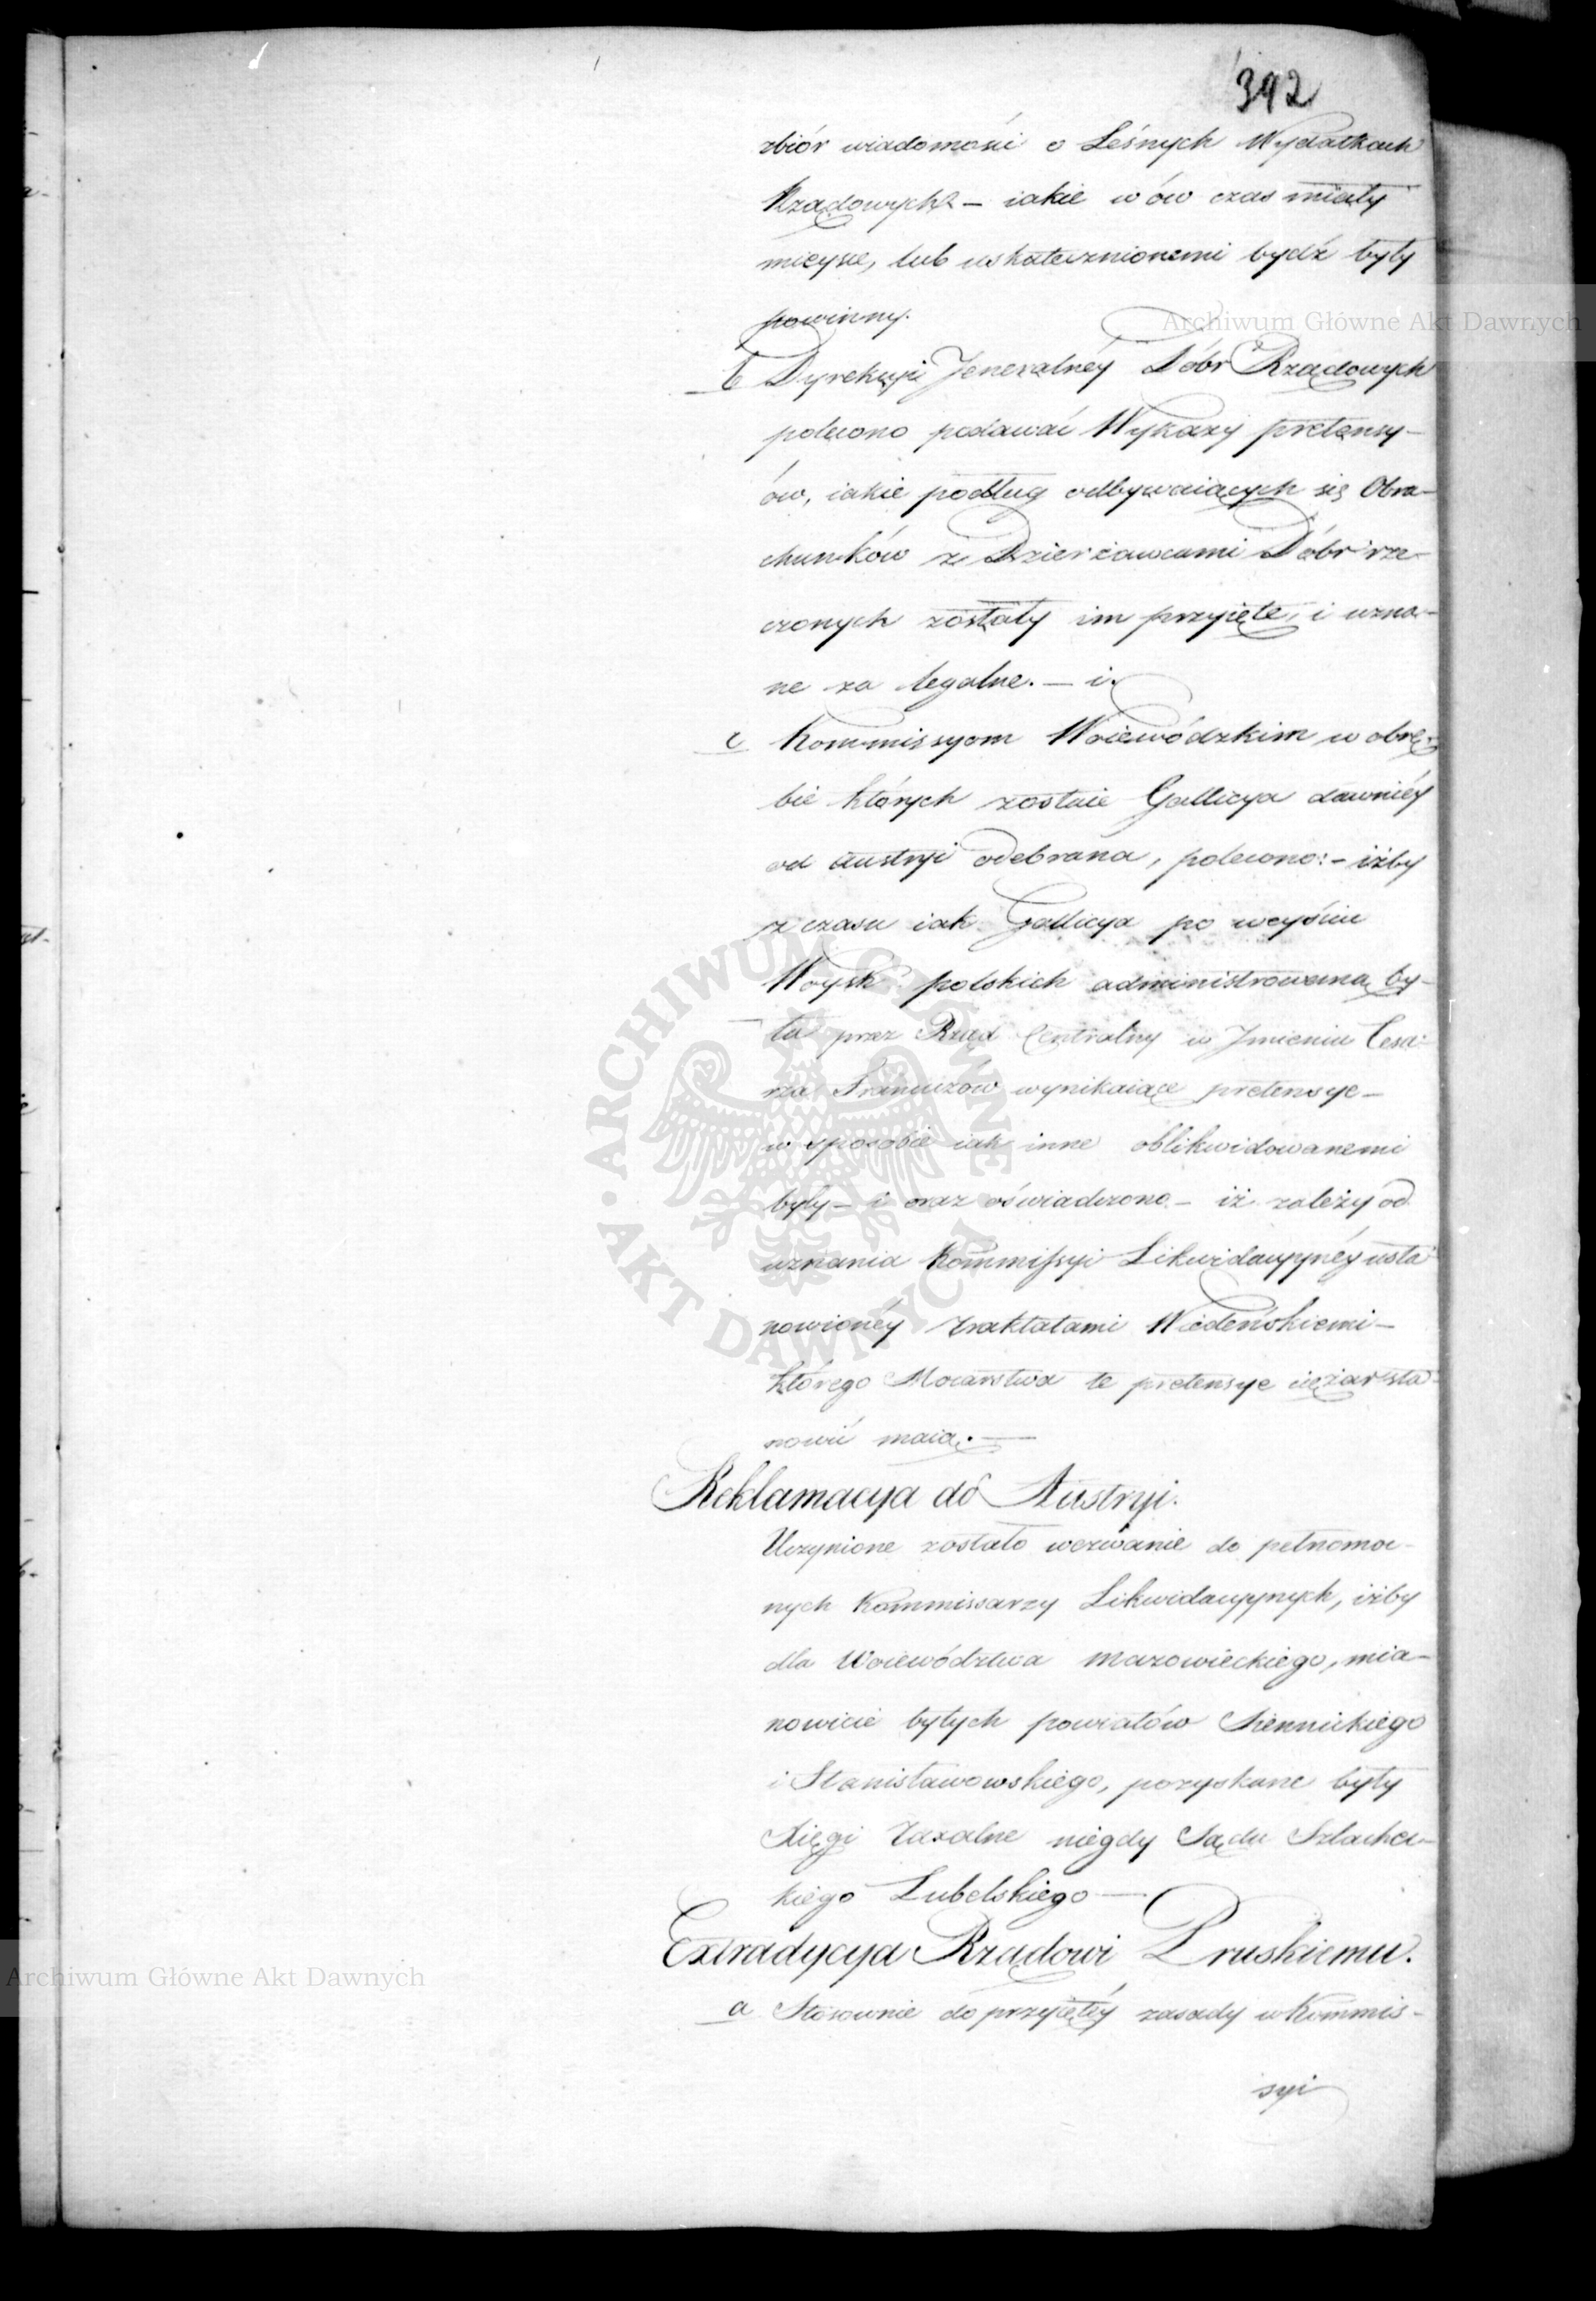 392
zbiór wiadomości o Leśnych Wydatkach
Rządowych - iakie w ów czas miały
mieysce, lub uskutecznionemi bydź były
powinny.
b Dyrekcyi Jeneralnéy Dóbr Rządowych
polecono podawać Wykazy pretensy-
ów, iakie podług odbywaiących się Obra-
chunków z Dzierżawcami Dóbr rze-
czonych zostały im przyięte, i uzna-
ne za legalne. - i
c Kommissyom Woiewódzkim w obrę-
bie których zostaie Gallicya dawniéy
od Austryi odebrana, polecono: - iżby
z czasu iak Gallicya po weyściu
Woysk polskich administrowana by-
ła przez Rząd Centralny w Jmieniu Cesa-
rza Francuzów wynikaiące pretensye -
w sposobie iak inne oblikwidowanemi
były - i oraz oświadczono - iż zależy od
uznania Kommissyi Likwidacyynéy usta-
nowionéy traktatami Wiedeńskiemi -
którego Mocarstwa te pretensye ciężar sta-
nowić maią. -
Reklamacya do Austryi.
Uczynione zostało wezwanie do pełnomoc-
nych Kommissarzy Likwidacyynych, iżby
dla Woiewództwa Mazowieckiego, mia-
nowicie byłych powiatów Siennickiego
i Stanisławowskiego, pozyskane były
Xięgi Taxalne niegdy Sądu Szlachec-
kiego Lubelskiego -
Extradycya Rządowi Pruskiemu.
a Stosownie do przyiętéy zasady w Kommis-
syi
Archiwum Główne Akt Dawnych
ARCHIWUM GŁÓWNE • AKT DAWNYCH •
Archiwum Główne Akt Dawnych